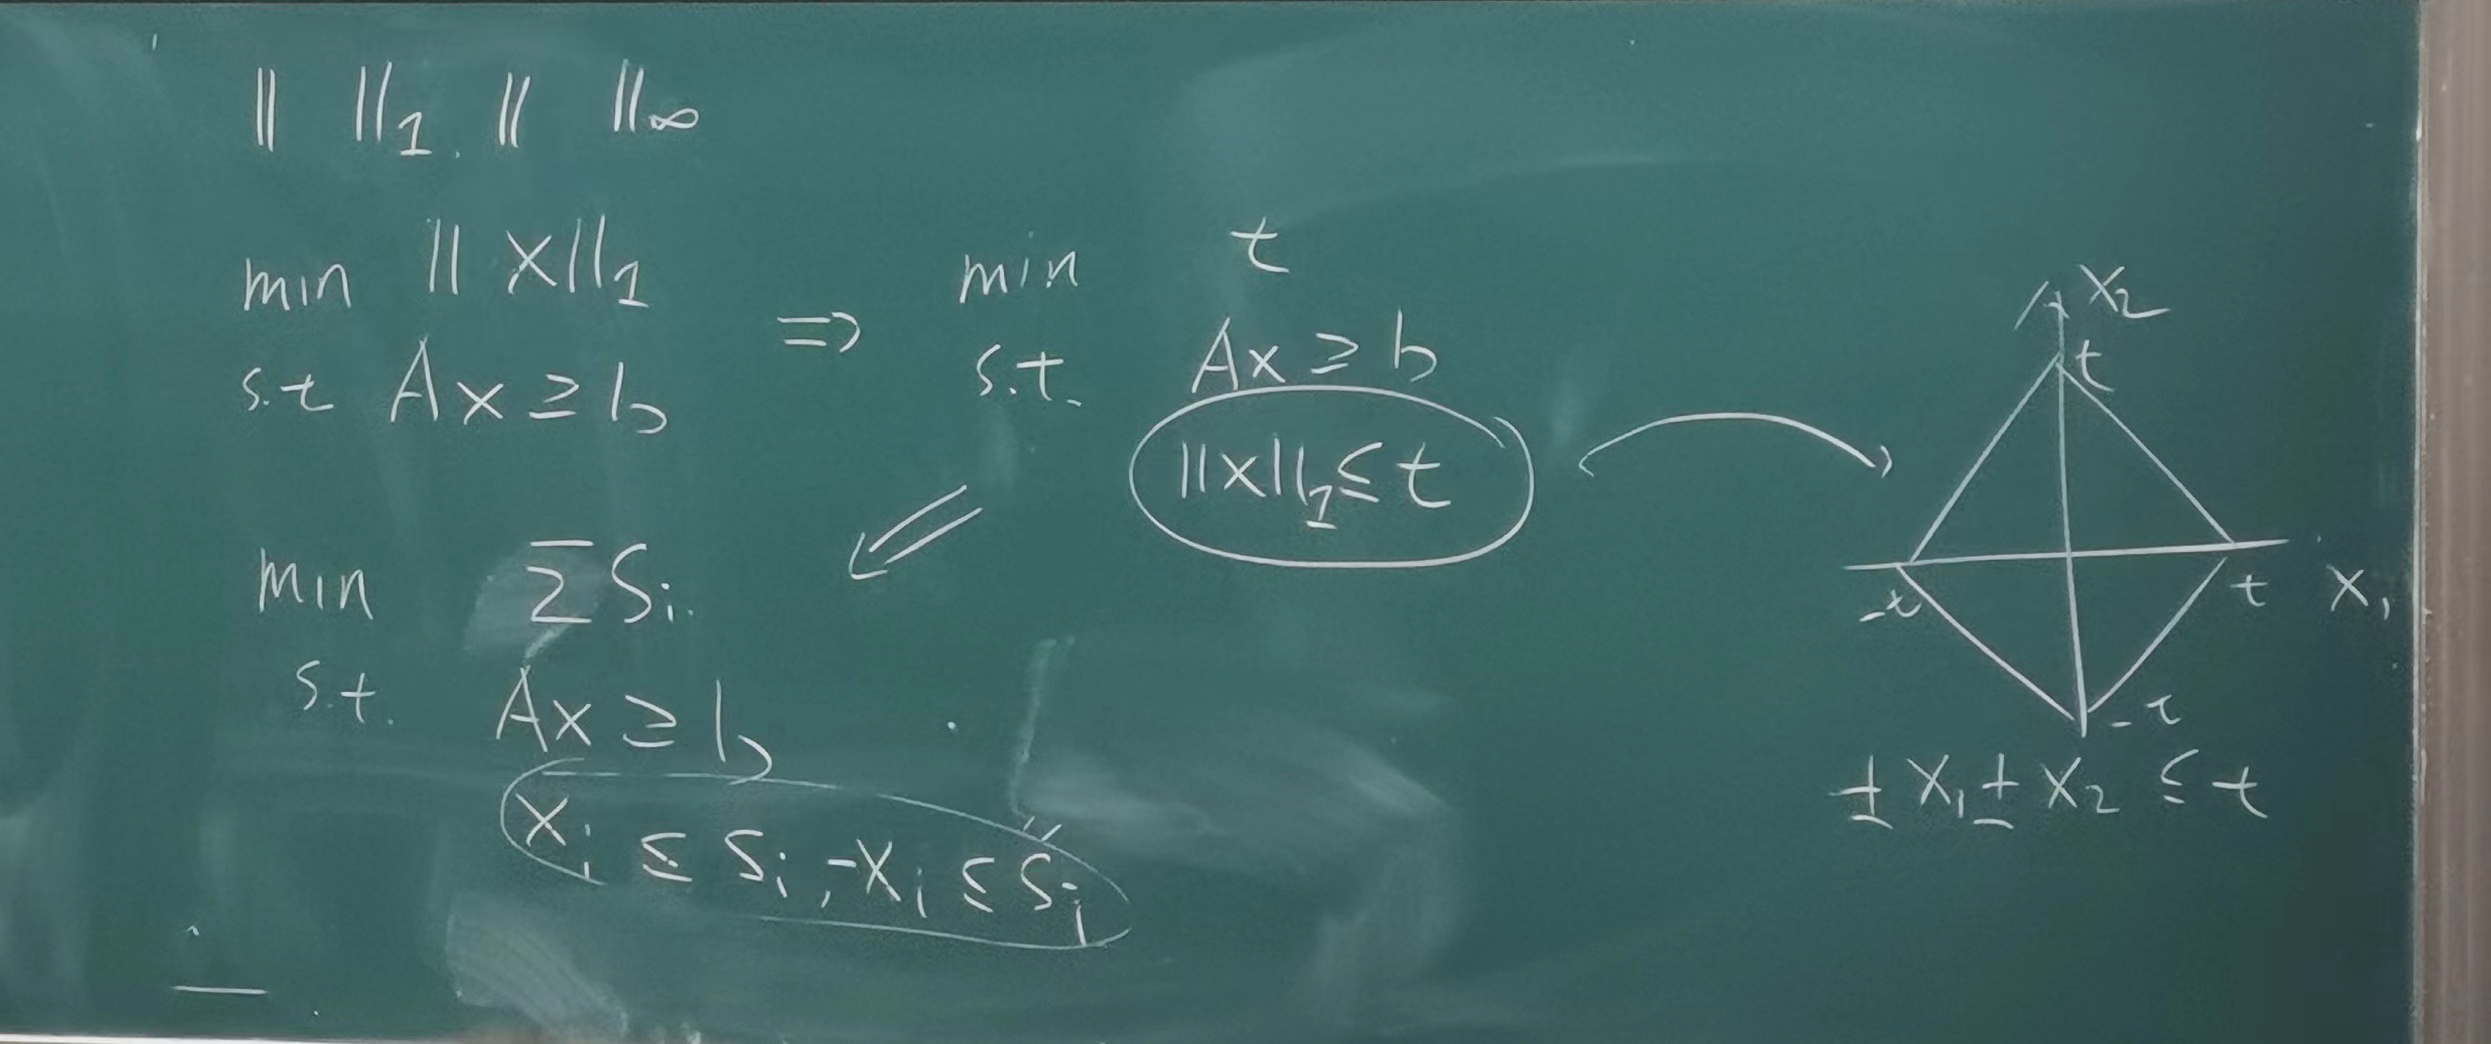 ‖ ‖₁, ‖ ‖∞
min ‖x‖₁
s.t Ax ≥ b
⇒
min t
s.t. Ax ≥ b
‖x‖₁ ≤ t
min Σ Sᵢ
s.t. Ax ≥ b
xᵢ ≤ Sᵢ, -xᵢ ≤ Sᵢ
x₂
t
-t t x₁
-t
± x₁ ± x₂ ≤ t